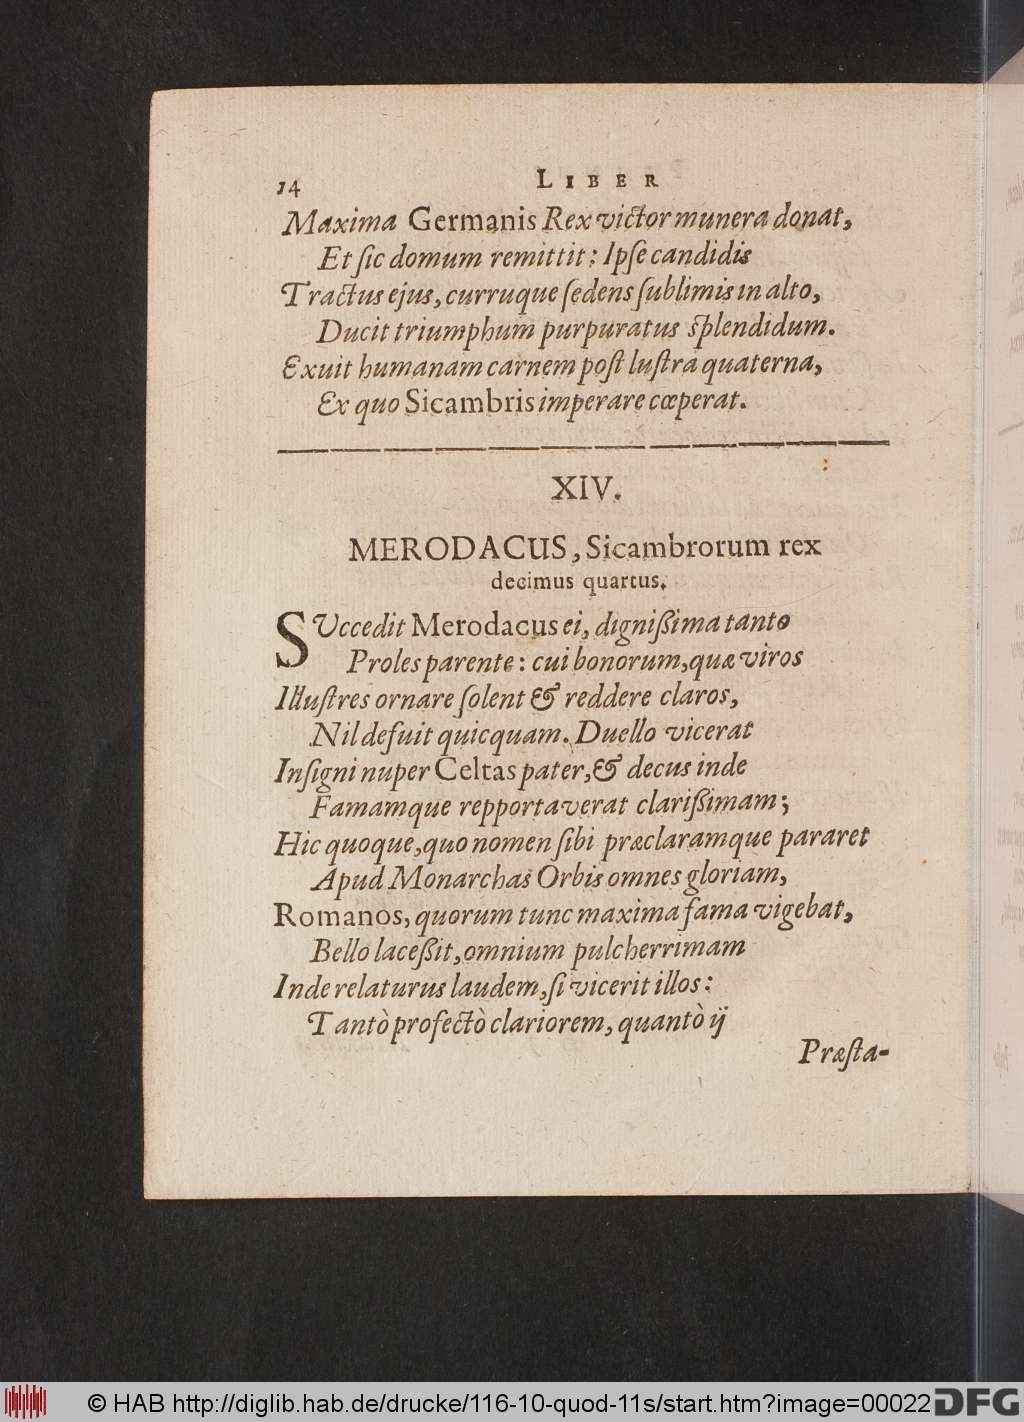 14 LIBER
Maxima Germanis Rex victor munera donat,
Et ſic domum remittit: Ipſe candidis
Tractus ejus, curruque ſedens ſublimis in alto,
Ducit triumphum purpuratus ſplendidum.
Exuit humanam carnem poſt luſtra quaterna,
Ex quo Sicambris imperare cœperat.
XIV.
MERODACUS, Sicambrorum rex
decimus quartus.
SUccedit Merodacus ei, digniſſima tanto
Proles parente: cui bonorum, quæ viros
Illuſtres ornare ſolent & reddere claros,
Nil defuit quicquam. Duello vicerat
Inſigni nuper Celtas pater, & decus inde
Famamque repportaverat clariſſimam;
Hic quoque, quo nomen ſibi præclaramque pararet
Apud Monarchas Orbis omnes gloriam,
Romanos, quorum tunc maxima fama vigebat,
Bello laceſſit, omnium pulcherrimam
Inde relaturus laudem, ſi vicerit illos:
Tantò profectò clariorem, quantò ij
Præſta-
© HAB http://diglib.hab.de/drucke/116-10-quod-11s/start.htm?image=00022 DFG